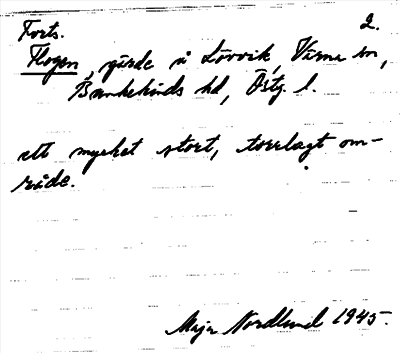 Forts. 2.
Flogen, gärde å Lövvik, Värna sn,
Bankekinds hd, Östg. l.
ett mycket stort, torrlagt om-
råde.
Maja Nordlund 1945.